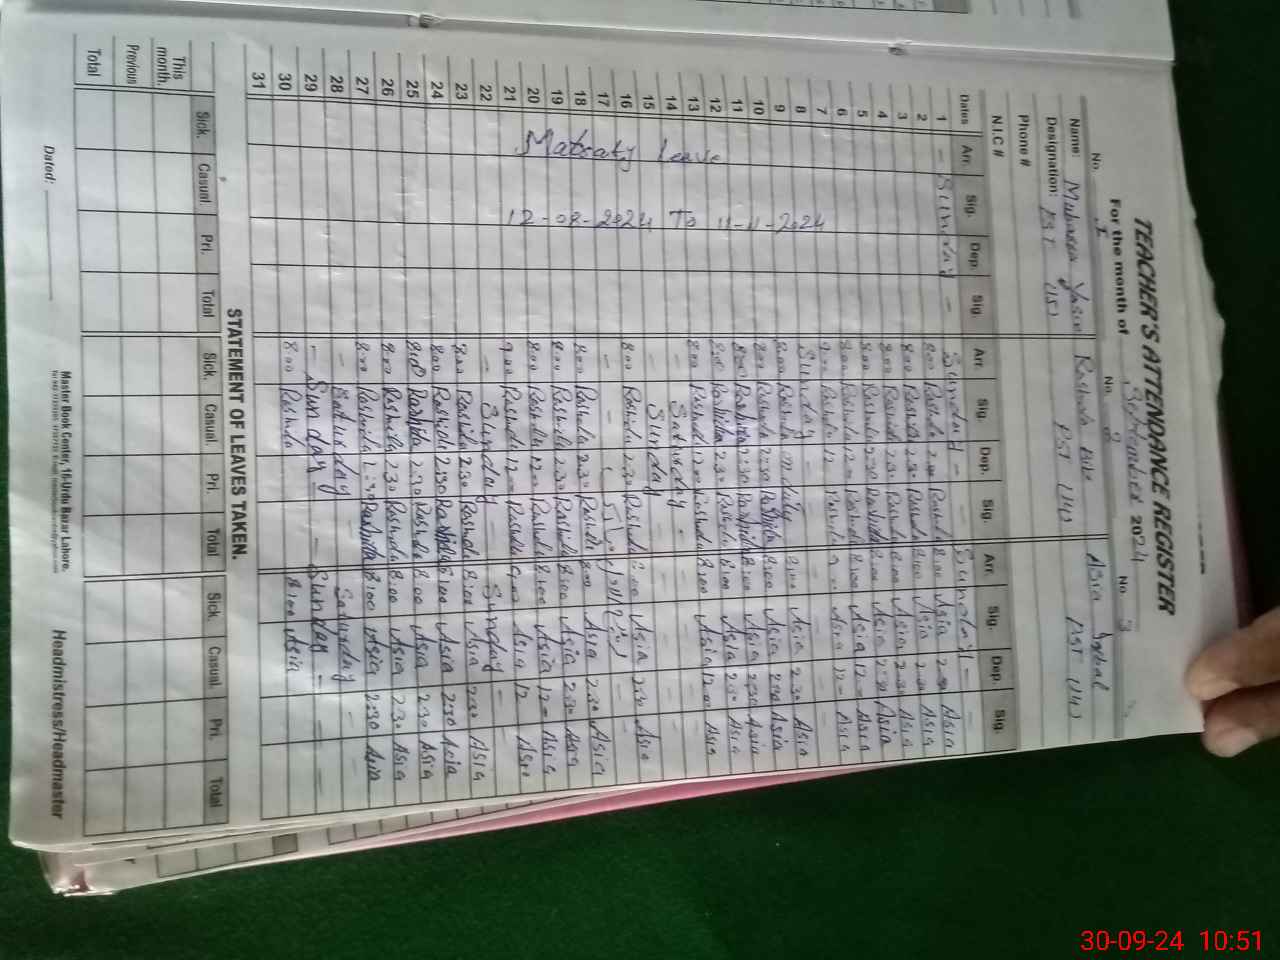 TEACHER'S ATTENDANCE REGISTER
For the month of September 2024
No. 1 No. 2 No. 3
Name: Yasin Rashida Bibi Asia Iqbal
Designation: PST (15) PST (14) PST (14)
Phone #
N.I.C #
Dates Arr. Sig. Dep. Sig. Arr. Sig. Dep. Sig. Arr. Sig. Dep. Sig.
1 - Sunday - Sunday - Sunday -
2 8:00 Rashida 2:30 Rashida 8:00 Asia 2:30 Asia
3 8:00 Rashida 2:30 Rashida 8:00 Asia 2:30 Asia
4 8:00 Rashida 2:30 Rashida 8:00 Asia 2:30 Asia
5 8:00 Rashida 2:30 Rashida 8:00 Asia 2:30 Asia
6 8:00 Rashida 12:00 Rashida 8:00 Asia 12:00 Asia
7 Rashida 12 Rashida Asia 12 Asia
8 Sunday -
9 8:00 Rashida 8:00 Asia 2:30 Asia
10 8:00 Rashida 2:30 Rashida 8:00 Asia 2:30 Asia
11 8:00 Rashida 2:30 Rashida 8:00 Asia 2:30 Asia
12 8:00 Rashida 2:30 Rashida 8:00 Asia 2:30 Asia
13 8:00 Rashida 12:00 Rashida 8:00 Asia 12:00 Asia
14 - Saturday -
15 - Sunday -
16 8:00 Rashida 2:30 Rashida 8:00 Asia 2:30 Asia
17
18 8:00 Rashida 2:30 Rashida 8:00 Asia 2:30 Asia
19 8:00 Rashida 2:30 Rashida 8:00 Asia 2:30 Asia
20 8:00 Rashida 12:00 Rashida 8:00 Asia 12:00 Asia
21 9:00 Rashida 12:00 Rashida 9:00 Asia 12 Asia
22 - Sunday - Sunday -
23 8:00 Rashida 2:30 Rashida 8:00 Asia 2:30 Asia
24 8:00 Rashida 2:30 Rashida 8:00 Asia 2:30 Asia
25 8:00 Rashida 2:30 Rashida 8:00 Asia 2:30 Asia
26 8:00 Rashida 2:30 Rashida 8:00 Asia 2:30 Asia
27 8:00 Rashida Rashida 8:00 Asia 2:30 Asia
28 - Saturday - Saturday -
29 - Sunday - Sunday -
30 8:00 Rashida 8:00 Asia
31
Matraty leave
12-08-2024 To 11-11-2024
STATEMENT OF LEAVES TAKEN.
Sick. Casual. Pri. Total Sick. Casual. Pri. Total Sick. Casual. Pri. Total
This month.
Previous
Total
Dated:
Master Book Center, 16-Urdu Bazar Lahore.
Headmistress/Headmaster
30-09-24 10:51